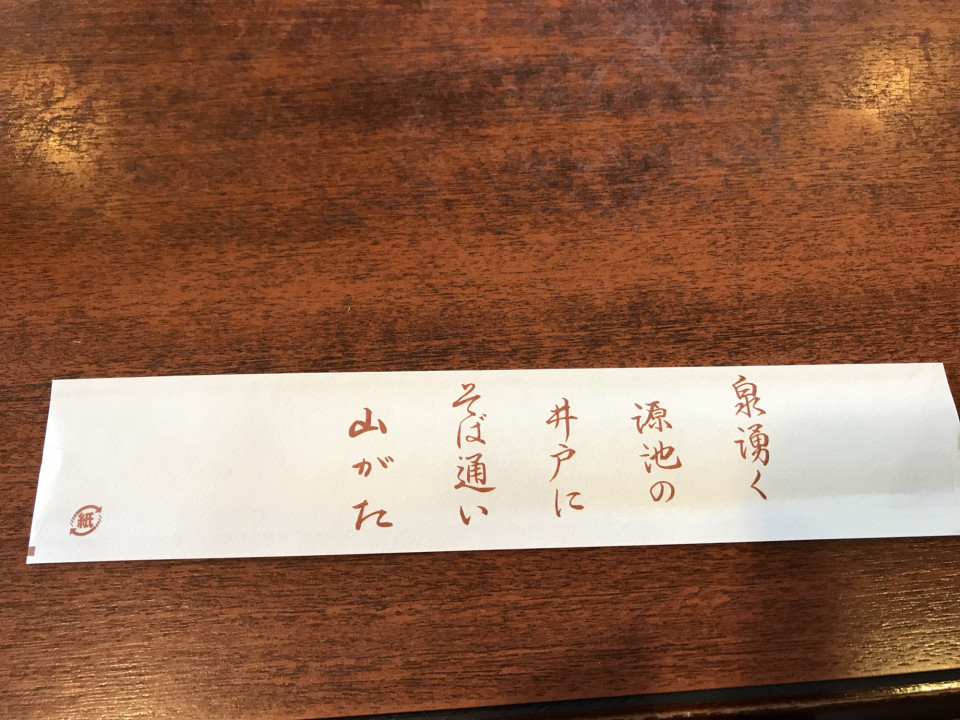 泉湧く
源池の
井戸に
そば通い
山がた
紙